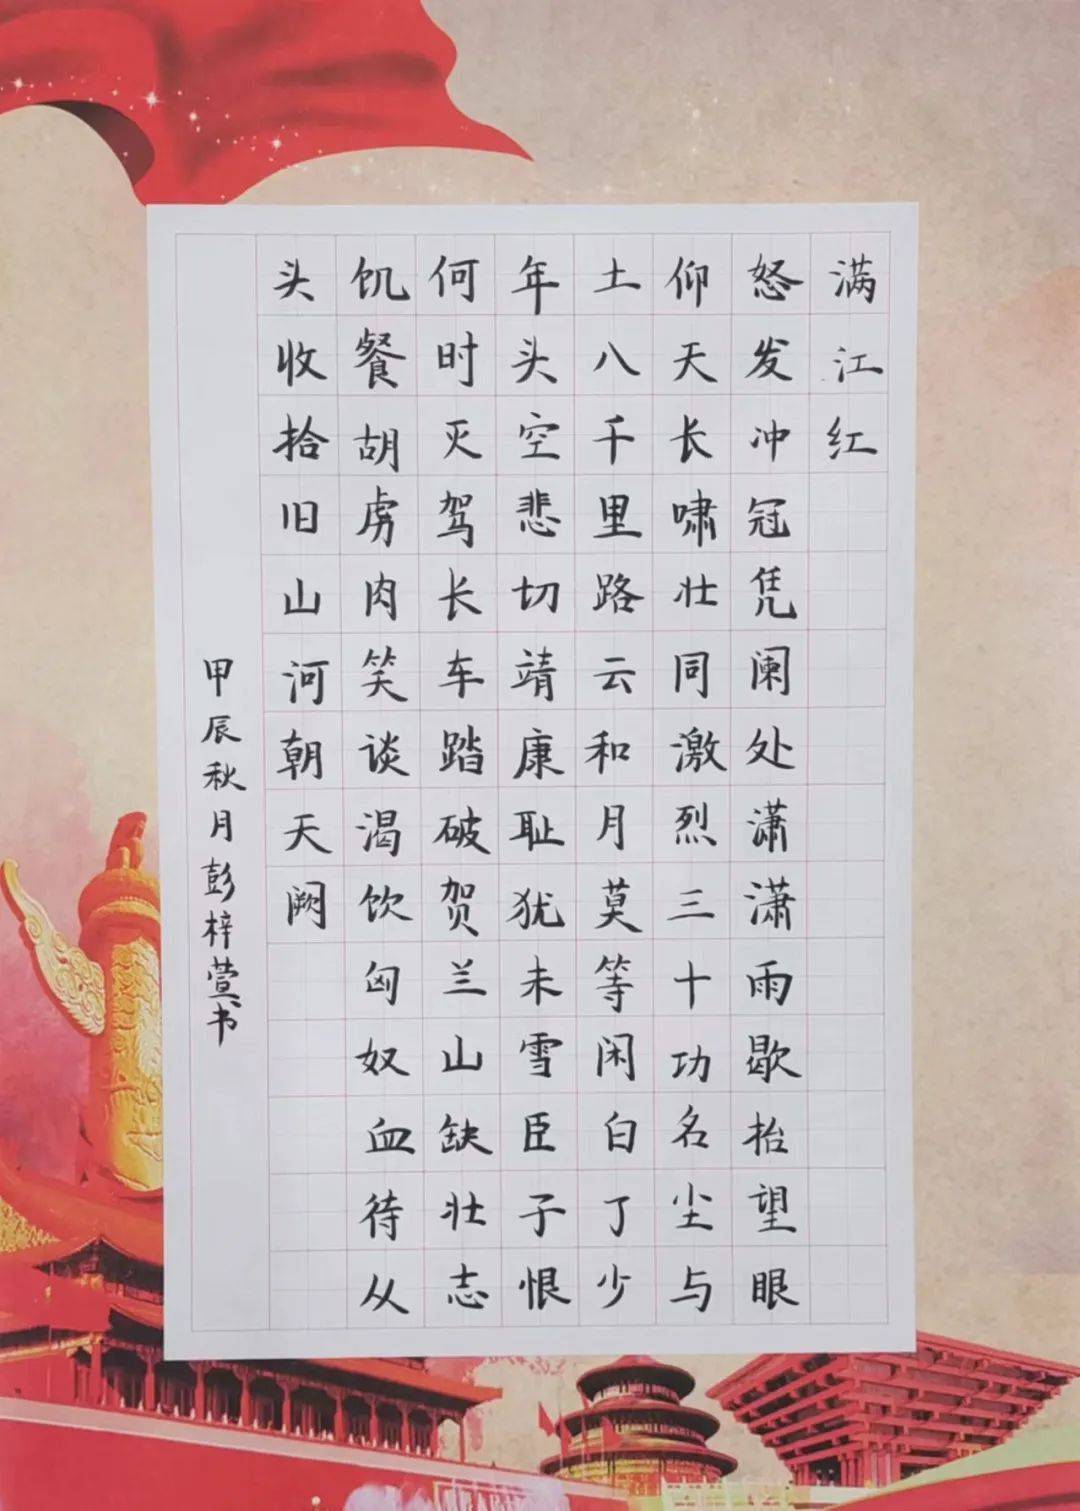 满江红
怒发冲冠凭阑处潇潇雨歇抬望眼
仰天长啸壮同激烈三十功名尘与
土八千里路云和月莫等闲白了少
年头空悲切靖康耻犹未雪臣子恨
何时灭驾长车踏破贺兰山缺壮志
饥餐胡虏肉笑谈渴饮匈奴血待从
头收拾旧山河朝天阙
甲辰秋月彭梓萱书